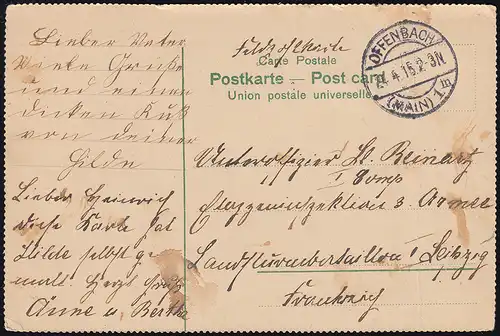 Lieber Vater
Viele Grüße
und einen
dicken Kuß
von deiner
Hilde
Lieber Heinrich
diese Karte hat
Hilde selbst ge
malt. Herzl. Grüße
Änne u Bertha
Feldpostkarte
Carte Postale
Postkarte — Post card
Union postale universelle
OFFENBACH
4.15.2-3N.
(MAIN) 1
Unteroffizier H. Reinartz
I Comp
Etappeninspektion 3. Armee
Landsturmbataillon I Leipzig
Frankreich